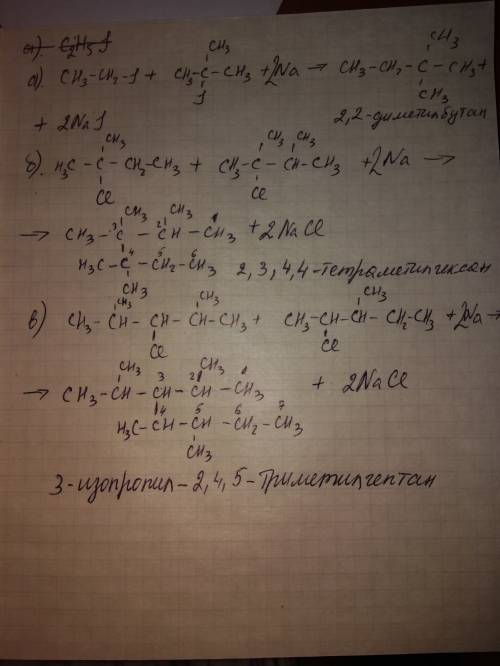 а). C₂H₅ I
CH₃ CH₃
а). CH₃–CH₂–I + CH₃–C–CH₃ +2Na → CH₃–CH₂–C–CH₃ +
I CH₃
+ 2NaI 2,2-диметилбутан
CH₃ CH₃ CH₃
б). H₃C–C–CH₂–CH₃ + CH₃–C–CH–CH₃ +2Na →
Cl Cl
CH₃ CH₃
→ CH₃–³C–²CH–¹CH₃ +2NaCl
H₃C–⁴C–⁵CH₂–⁶CH₃ 2,3,4,4-тетраметилгексан
CH₃
CH₃ CH₃ CH₃
в) CH₃–CH–CH–CH–CH₃ + CH₃–CH–CH–CH₂–CH₃ +2Na →
Cl Cl
CH₃ CH₃
→ CH₃–CH–³CH–²CH–¹CH₃ + 2NaCl
H₃C–⁴CH–⁵CH–⁶CH₂–⁷CH₃
CH₃
3-изопропил-2,4,5-триметилгептан